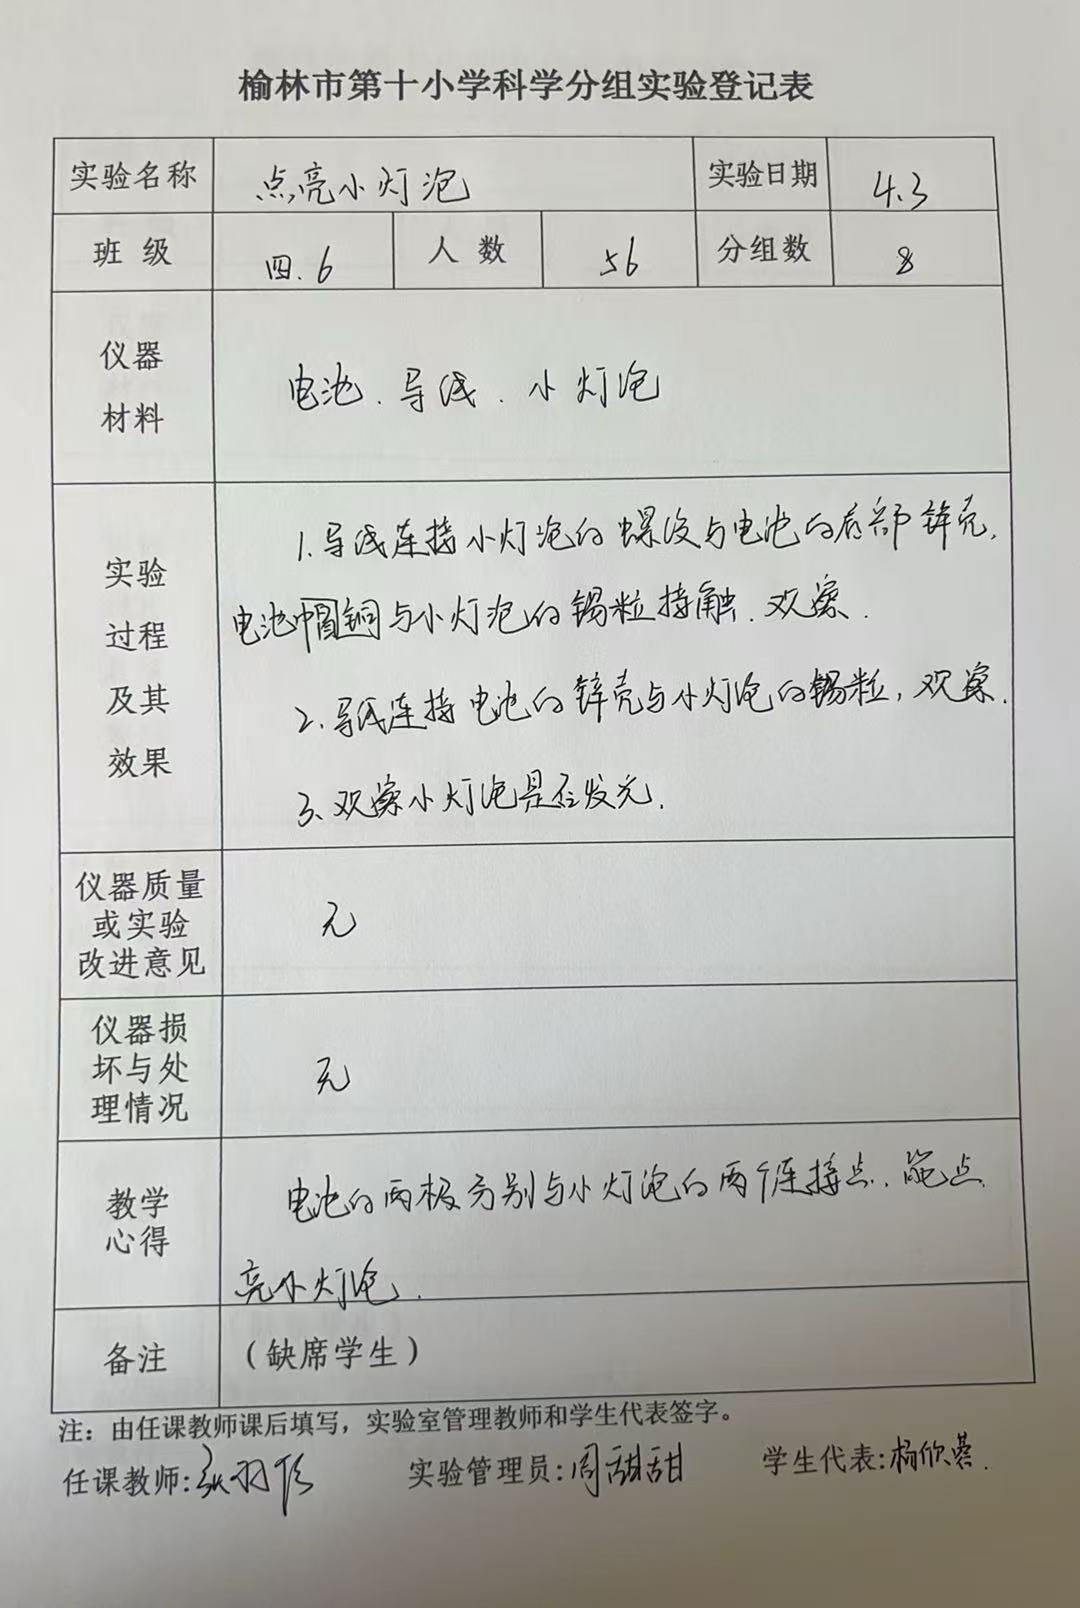 榆林市第十小学科学分组实验登记表
实验名称 点亮小灯泡 实验日期 4.3
班 级 四.6 人 数 56 分组数 8
仪器
材料
电池、导线、小灯泡
实验
过程
及其
效果
1.导线连接小灯泡的螺纹与电池的后部锌壳,
电池帽铜与小灯泡的锡粒接触、观察.
2.导线连接电池的锌壳与小灯泡的锡粒,观察.
3、观察小灯泡是否发光.
仪器质量
或实验
改进意见
无
仪器损
坏与处
理情况
无
教学
心得
电池的两极分别与小灯泡的两个连接点、能点
亮小灯泡.
备注 (缺席学生)
注:由任课教师课后填写,实验室管理教师和学生代表签字。
任课教师:张羽 实验管理员:周甜甜 学生代表:杨欣